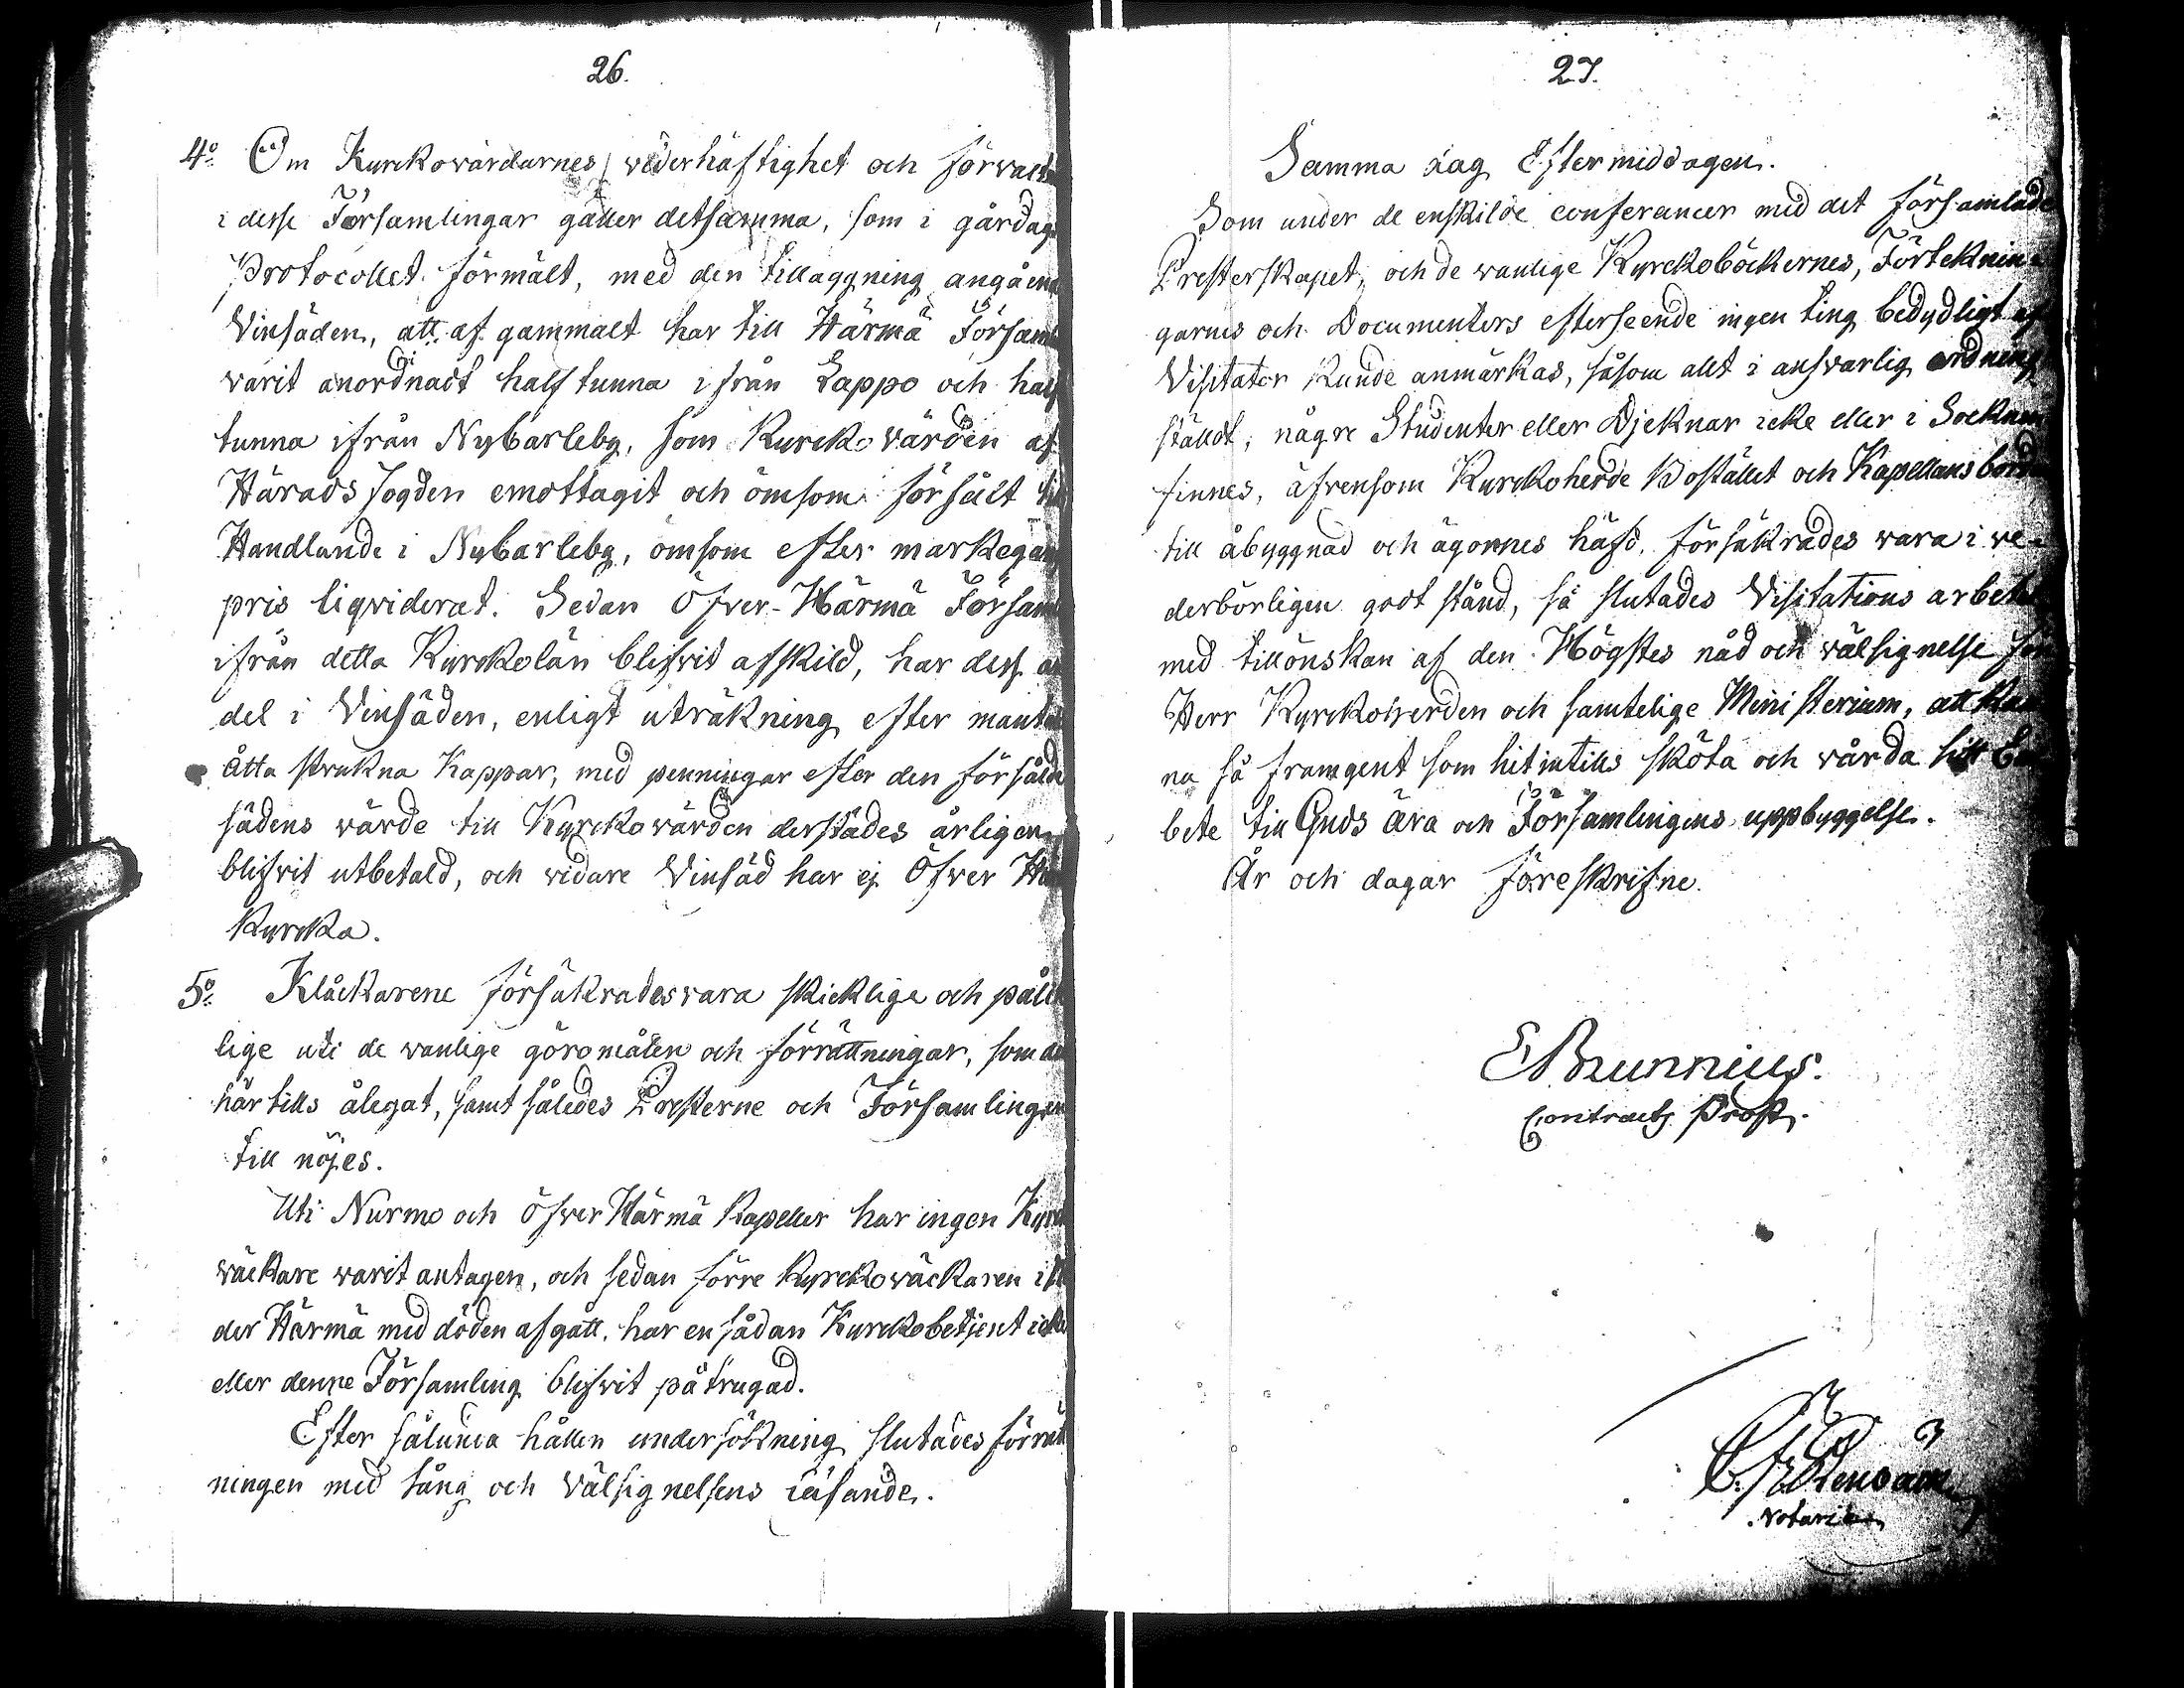 26.
4º Om Kyrckowärdarnes wederhäftighet och förvalt
i desse Församlingar gäller detsamma, som i gårdag
Protocollet förmält, med den tilläggning angåen
Vinsäden, att af gammalt har till Härmä Försam
varit anordnadt half tunna ifrån Lappo och half
tunna ifrån Nybarleby, som Kyrckovärden af
Härads fogden emottagit och ömsom försält til
Handlande i Nybarleby, ömsom efter markegån
pris liqviderat. Sedan Öfver-Härmä Försam
ifrån detta Kyrckolän blifvit afskild, har dess an
del i Vinsäden, enligt uträkning efter manta
åtta strukna Kappar, med penningar efter den försålde
sädens wärde till Kyrckowärden derstädes årligen
blifvit utbetald, och vidare Vinsäd har ej Öfver Hä
Kyrcka.
5º Klåckarene försäkrades vara skicklige och påli
lige uti de wanlige göromålen och förrättningar, som de
här tills ålegat, samt således Presterne och Församlingen
till nöjes.
Uti Nurmo och Öfver Härmä Kapeller har ingen Kyrck
wäckare warit antagen, och sedan förre Kyrckowäckaren i
der Härmä med döden afgått, har en sådan Kyrckobetjent icke
eller denne Församling blifvit påtrugad.
Efter sålunda hållen undersökning slutades förrät
ningen med sång och Välsignelsens läsande.
27.
Samma dag Eftermiddagen.
Som under de enskilde conferancer med det församlade
Presterskapet, och de wanlige Kyrckoböckernes, Förteknin-
garnes och Documenters efterseende ingen ting bedydligt af
Visitator kunde anmärkas, såsom allt i ansvarlig ordning
ställdt, någre Studenter eller Djeknar icke eller i Socknen
finnes, äfvensom Kyrckoherde Bostället och Kapellans borden
till åbyggnad och ägornes häfd, försäkrades vara i ve-
derbörligen godt stånd, så slutades Visitations arbetet
med tillönskan af den Högstes nåd och välsignelse för
Herr Kyrckoherden och samtelige Ministerium, att kun
na så framgent som hitintills sköta och vårda sitt Em
bete till Guds ära och Församlingens uppbyggelse.
År och dagar föreskrifne.
E Brunnius.
Contracts Prost.
Notarius